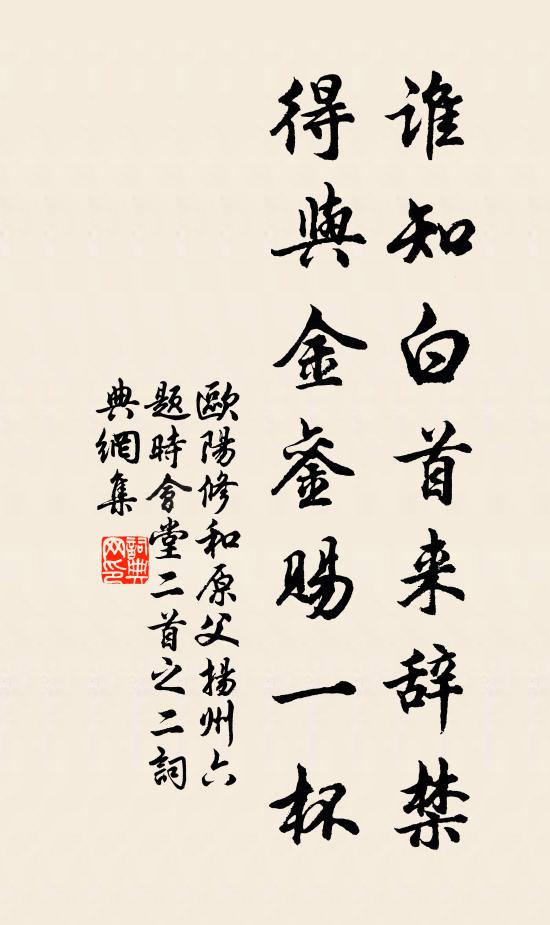 谁知白首来辞禁
得與金銮赐一杯
歐陽修和原父揚州六
題時會堂二首之二詞
典網集
詞典
网印